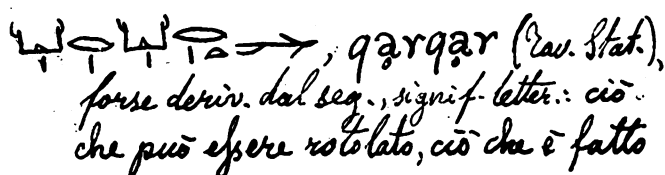 , qḁrqḁr (Tav. Stat.),
forse deriv. dal seg., signif. letter.: ciò
che può eſsere rotolato, ciò che è fatto